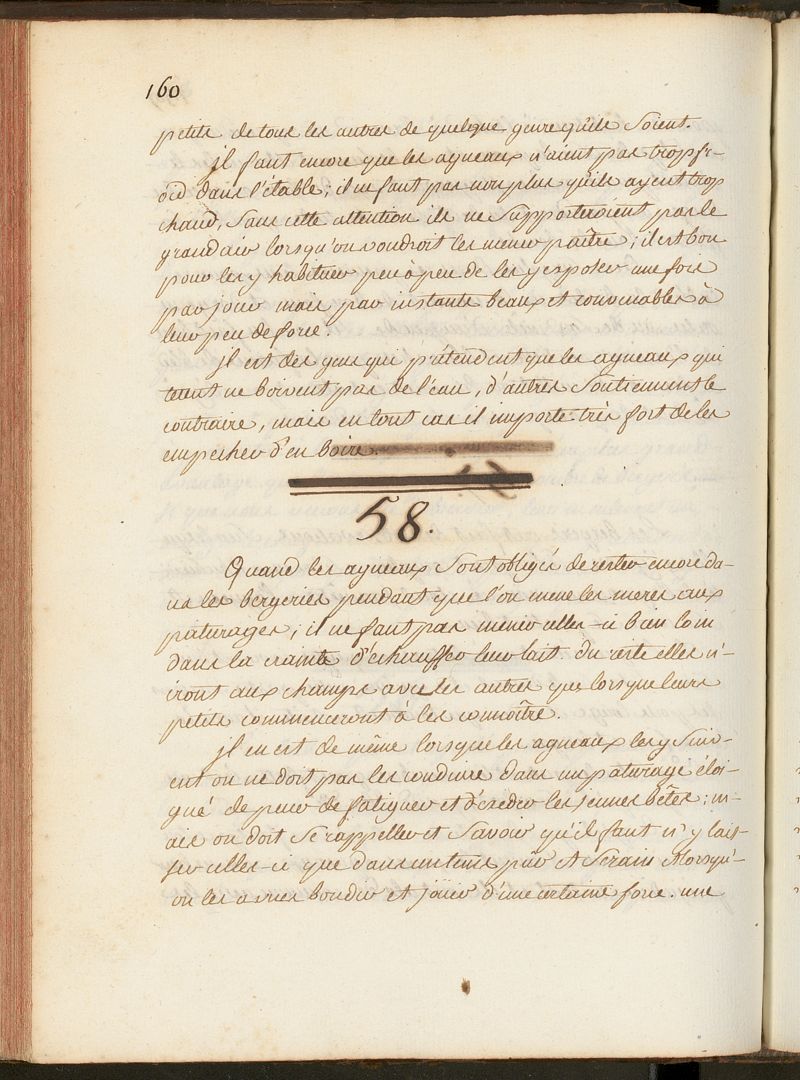 160
petits de tous les autres de quelque genre qu'ils soient.
Il faut encore que les agneaux n'aient pas trop fr-
oid dans l'étable; il ne faut pas non plus qu'ils ayent trop
chaud, sans cette attention ils ne supporteroient pas le
grand air lorsqu'on voudroit les mener paître; il est bon
pour les y habituer peu à peu de les y exposer une fois
par jour mais par instants beaux et convenables à
leur peu de force.
Il est des gens qui prétendent que les agneaux qui
tetent ne boivent pas de l'eau, d'autres soutiennent le
contraire, mais en tout cas il importe très fort de les
empecher d'en boire.
58.
Quand les agneaux sont obligés de rester encore da-
ns les bergeries pendant que l'on mene les meres aux
paturages; il ne faut pas mener celles-ci bien loin
dans la crainte d'échauffer leur lait. du reste elles n'-
iront aux champs avec les autres que lorsque leurs
petits commenceront à les connoître.
Il en est de même lorsque les agneaux les y suiv-
ent on ne doit pas les conduire dans un paturage éloi-
gné de peur de fatiguer et d'excéder les jeunes bêtes; m-
ais on doit se rappeller et savoir qu'il faut n'y lais-
ser celles-ci que dans un tems pur et serain et lorsqu'-
on les a vues bondir et jouir d'une certaine force. une